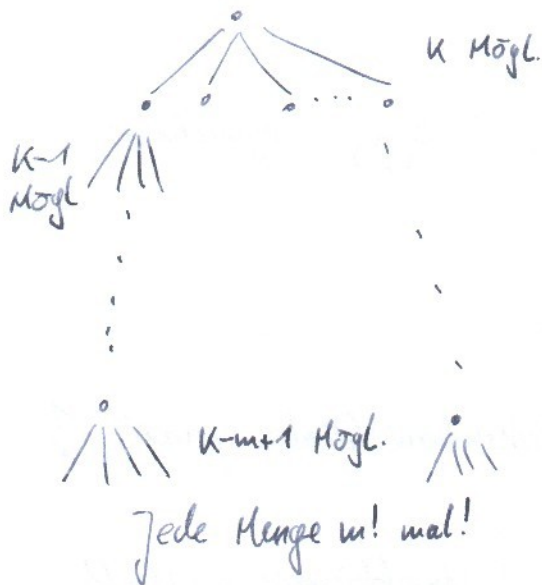 K Mögl.
K-1
Mögl
K-m+1 Mögl.
Jede Menge m! mal!